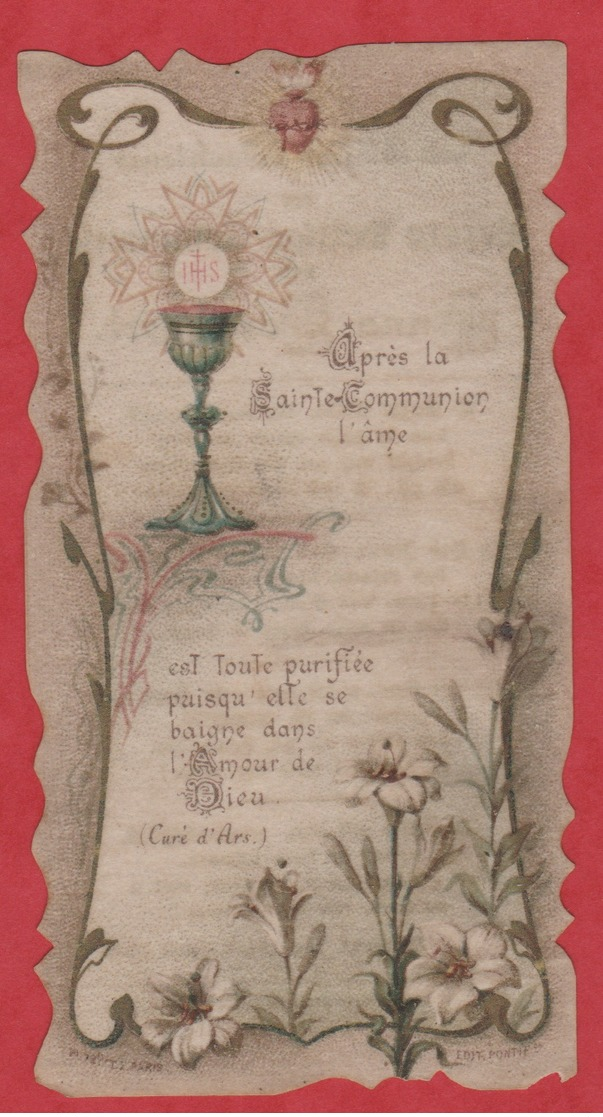 IHS
Après la
Sainte-Communion
l'âme
est toute purifiée
puisqu' elle se
baigne dans
l'Amour de
Dieu.
(Curé d'Ars.)
PARIS
EDIT. PONTIF